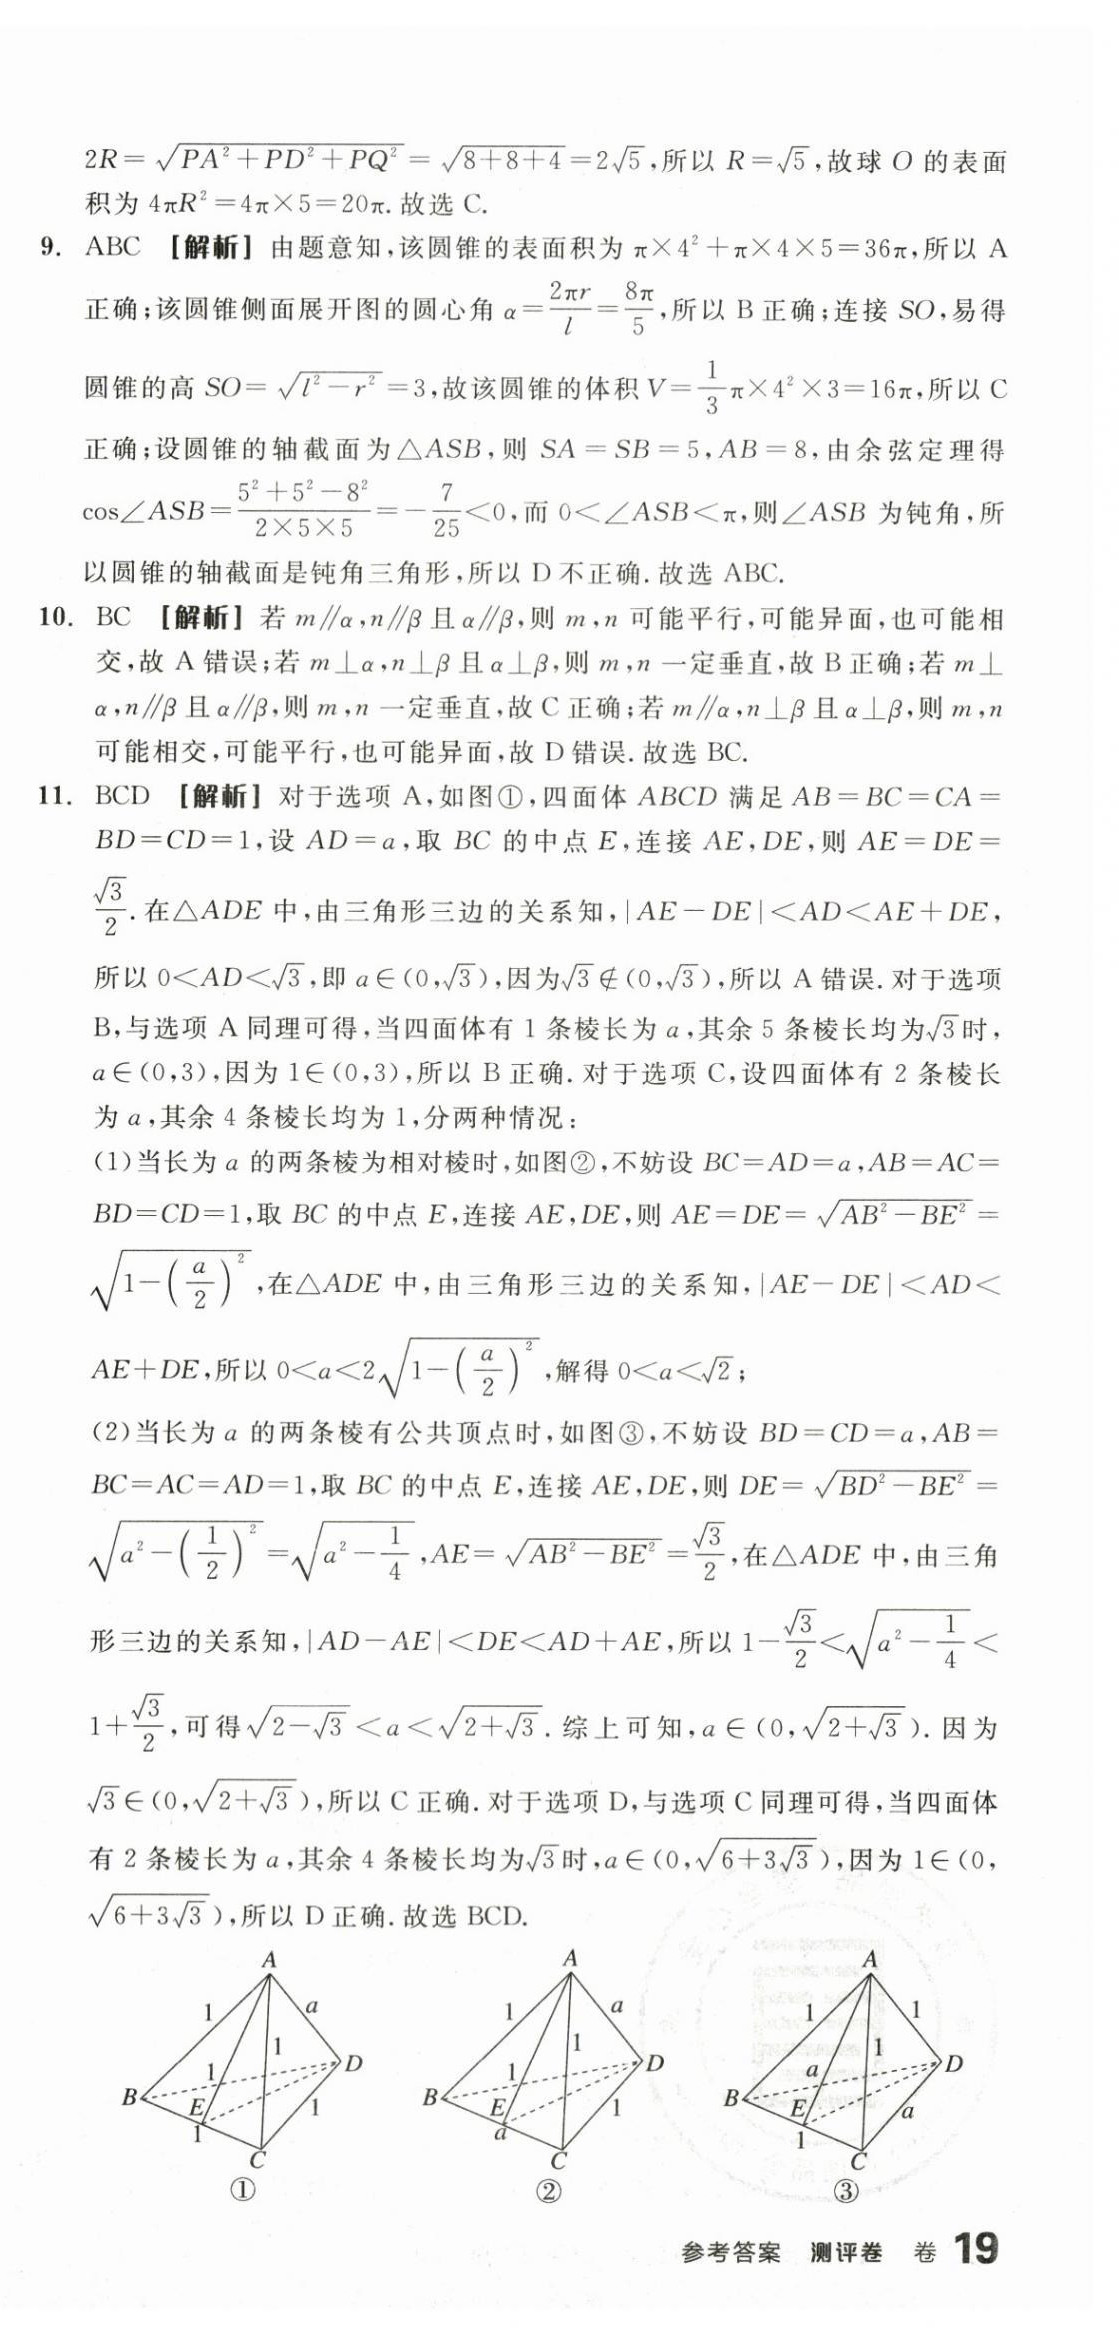 2R=√(PA²+PD²+PQ²)=√(8+8+4)=2√5,所以 R=√5,故球 O 的表面
积为 4πR²=4π×5=20π.故选 C.
9. ABC 【解析】由题意知,该圆锥的表面积为 π×4²+π×4×5=36π,所以 A
正确;该圆锥侧面展开图的圆心角 α=2πr/l=8π/5,所以 B 正确;连接 SO,易得
圆锥的高 SO=√(l²-r²)=3,故该圆锥的体积 V=1/3π×4²×3=16π,所以 C
正确;设圆锥的轴截面为△ASB,则 SA=SB=5,AB=8,由余弦定理得
cos∠ASB=(5²+5²-8²)/(2×5×5)=-7/25<0,而 0<∠ASB<π,则∠ASB 为钝角,所
以圆锥的轴截面是钝角三角形,所以 D 不正确.故选 ABC.
10. BC 【解析】若 m∥α,n∥β 且 α∥β,则 m,n 可能平行,可能异面,也可能相
交,故 A 错误;若 m⊥α,n⊥β 且 α⊥β,则 m,n 一定垂直,故 B 正确;若 m⊥
α,n∥β 且 α∥β,则 m,n 一定垂直,故 C 正确;若 m∥α,n⊥β 且 α⊥β,则 m,n
可能相交,可能平行,也可能异面,故 D 错误.故选 BC.
11. BCD 【解析】对于选项 A,如图①,四面体 ABCD 满足 AB=BC=CA=
BD=CD=1,设 AD=a,取 BC 的中点 E,连接 AE,DE,则 AE=DE=
√3/2.在△ADE 中,由三角形三边的关系知,|AE-DE|<AD<AE+DE,
所以 0<AD<√3,即 a∈(0,√3),因为√3∉(0,√3),所以 A 错误.对于选项
B,与选项 A 同理可得,当四面体有 1 条棱长为 a,其余 5 条棱长均为√3时,
a∈(0,3),因为 1∈(0,3),所以 B 正确.对于选项 C,设四面体有 2 条棱长
为 a,其余 4 条棱长均为 1,分两种情况:
(1)当长为 a 的两条棱为相对棱时,如图②,不妨设 BC=AD=a,AB=AC=
BD=CD=1,取 BC 的中点 E,连接 AE,DE,则 AE=DE=√(AB²-BE²)=
√(1-(a/2)²),在△ADE 中,由三角形三边的关系知,|AE-DE|<AD<
AE+DE,所以 0<a<2√(1-(a/2)²),解得 0<a<√2;
(2)当长为 a 的两条棱有公共顶点时,如图③,不妨设 BD=CD=a,AB=
BC=AC=AD=1,取 BC 的中点 E,连接 AE,DE,则 DE=√(BD²-BE²)=
√(a²-(1/2)²)=√(a²-1/4),AE=√(AB²-BE²)=√3/2,在△ADE 中,由三角
形三边的关系知,|AD-AE|<DE<AD+AE,所以 1-√3/2<√(a²-1/4)<
1+√3/2,可得√(2-√3)<a<√(2+√3).综上可知,a∈(0,√(2+√3)).因为
√3∈(0,√(2+√3)),所以 C 正确.对于选项 D,与选项 C 同理可得,当四面体
有 2 条棱长为 a,其余 4 条棱长均为√3时,a∈(0,√(6+3√3)),因为 1∈(0,
√(6+3√3)),所以 D 正确.故选 BCD.
A A A
1 a 1 a 1 1
1 1 1
1 D 1 D a D
B E 1 B E 1 B E a
1 a 1
C C C
① ② ③
参考答案 测评卷 卷 19